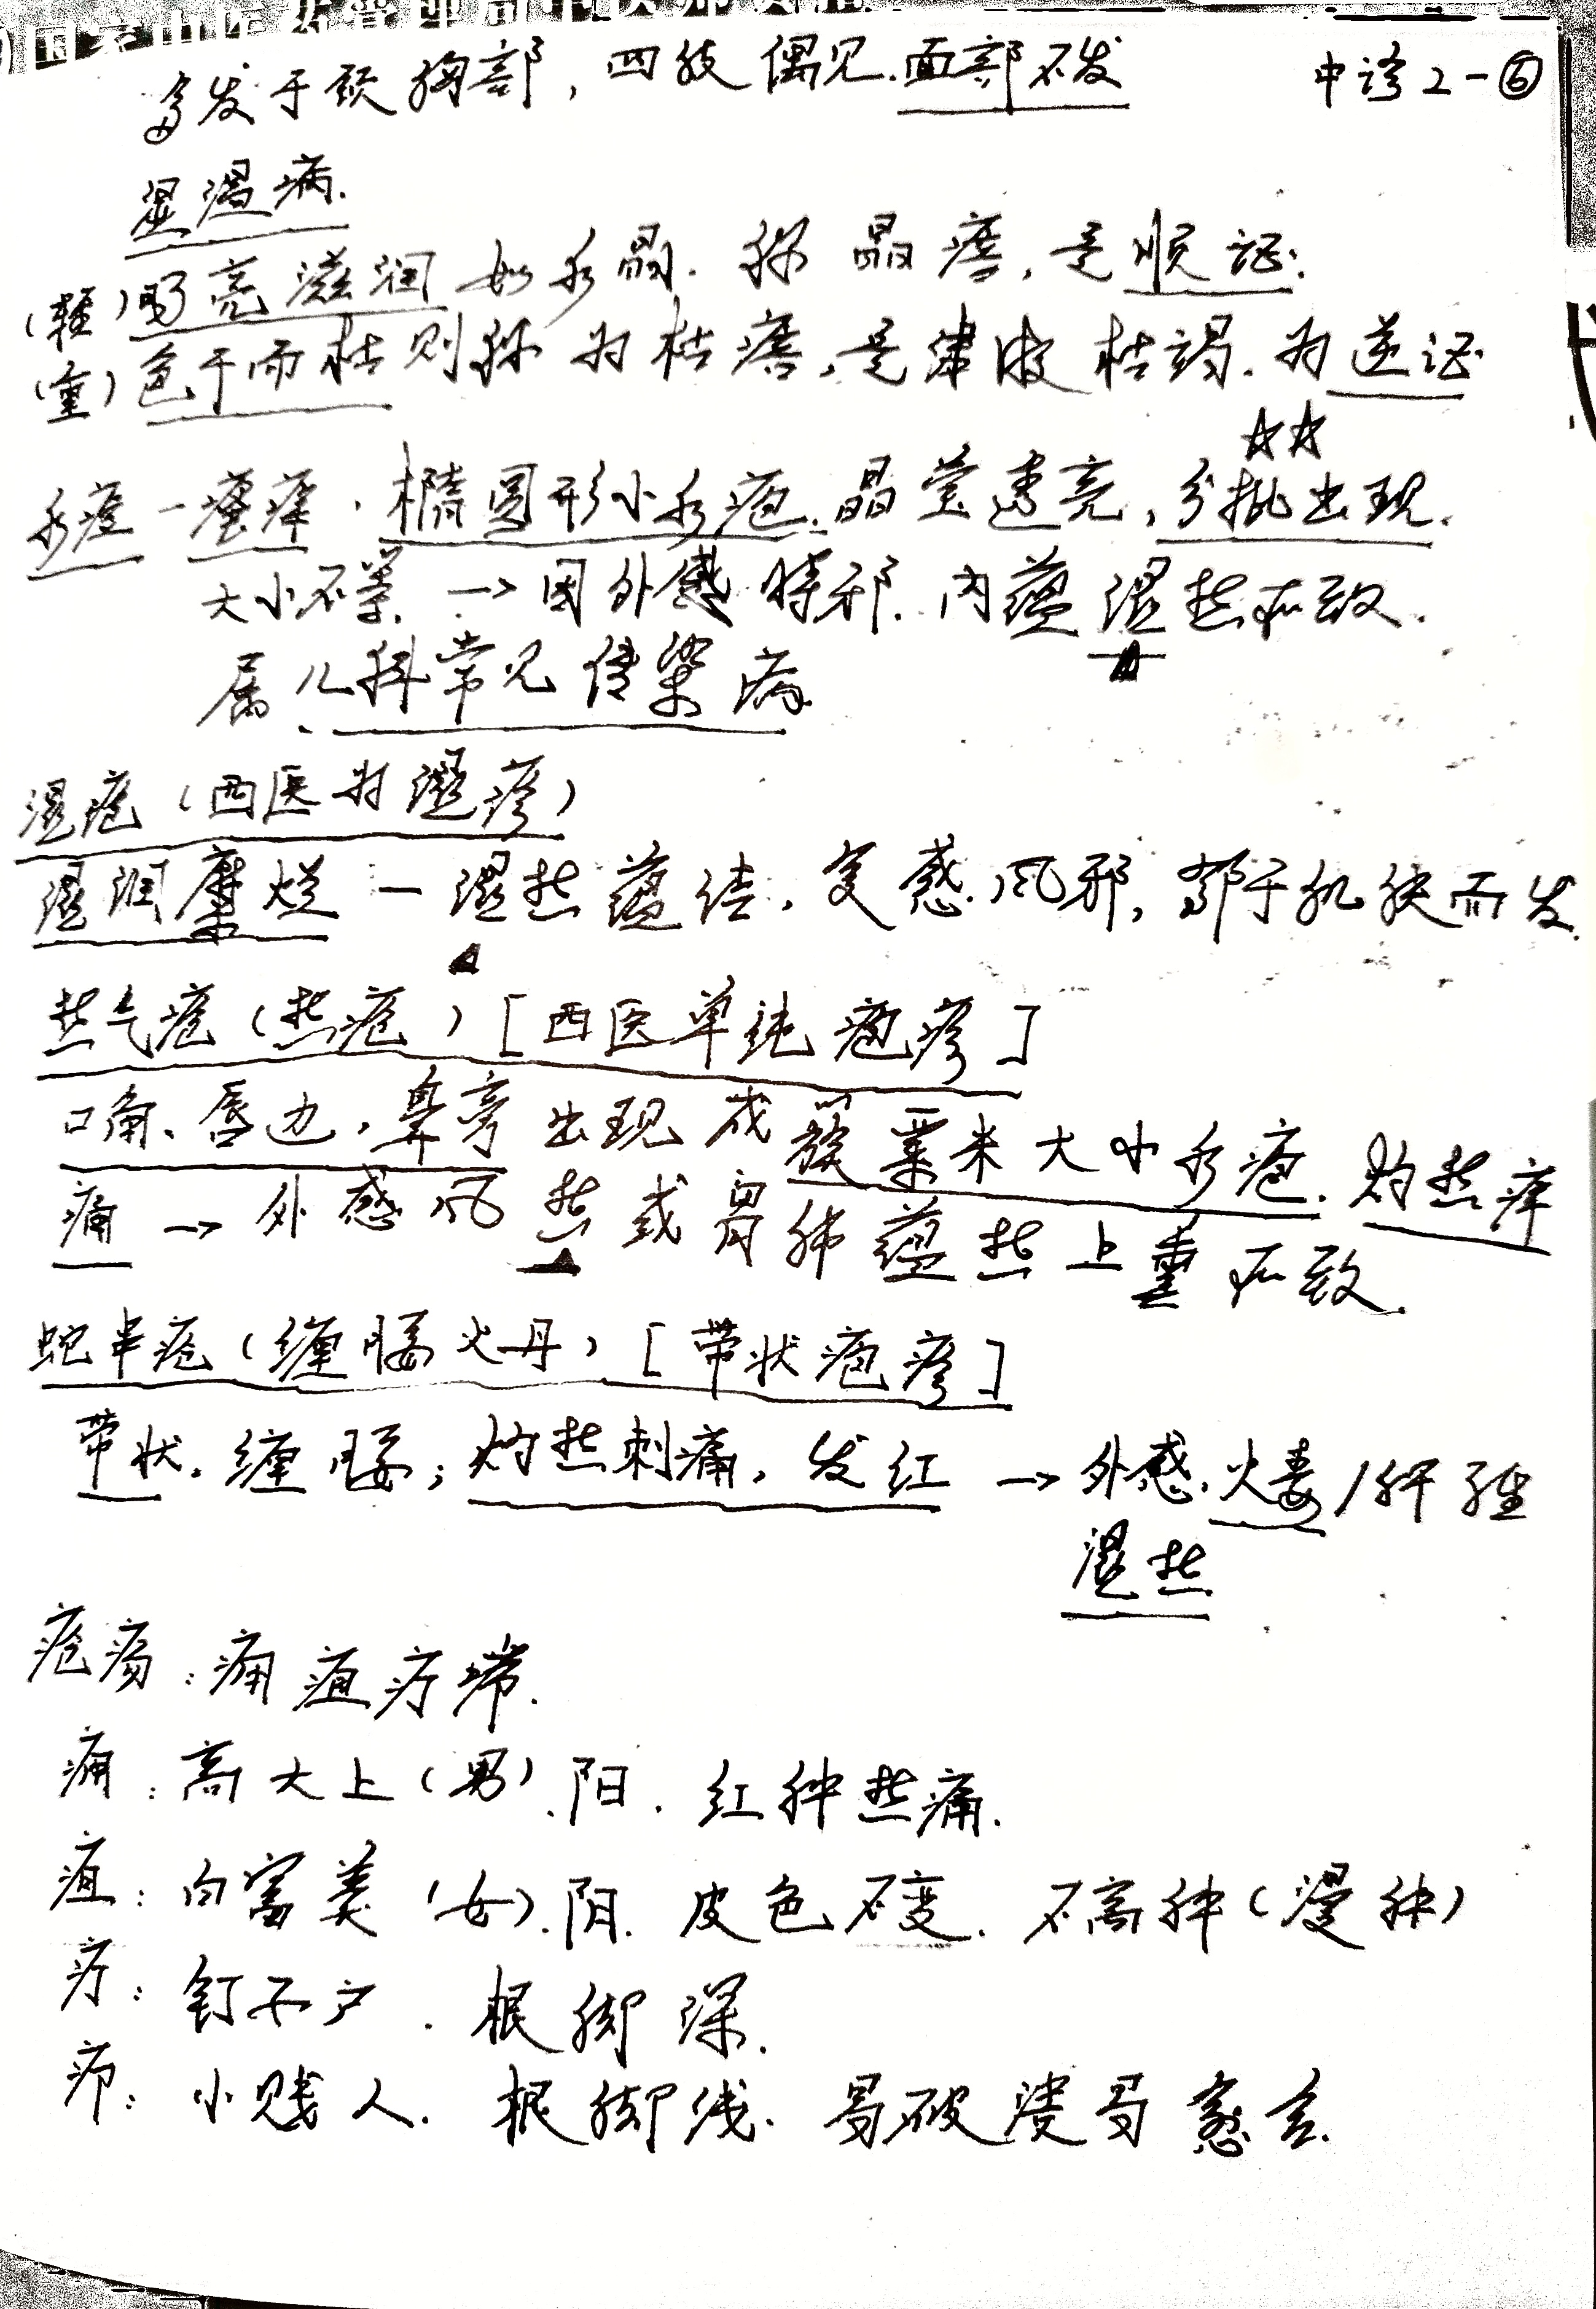 多发于颈胸部，四肢偶见.面部不发
中诊2-⑥
湿温病.
(轻)明亮滋润 如水晶. 称 晶㾦，是顺证;
(重)色干而枯则称为枯㾦，是津液枯竭.为逆证
☆☆
水痘-瘙痒.椭圆形小水疱.晶莹透亮，分批出现.
大小不等.→因外感时邪.内蕴湿热所致.
属儿科常见传染病
湿疮(西医为湿疹)
湿润糜烂 - 湿热蕴结，复感风邪，郁于肌肤而发.
热气疮(热疮)[西医单纯疱疹]
口角、唇边，鼻旁出现成簇粟米大小水疱.灼热痒
痛→外感风热或胃肺蕴热上熏所致.
蛇串疮(缠腰火丹)[带状疱疹]
带状，缠腰;灼热刺痛，发红→外感火毒/肝经
湿热
疮疡:痈疽疔
痈:高大上(男).阳.红肿热痛.
疽:白富美(女).阴.皮色不变.不高肿(漫肿)
疔:钉子户.根脚深.
疖:小贱人.根脚浅.易破溃易愈合.